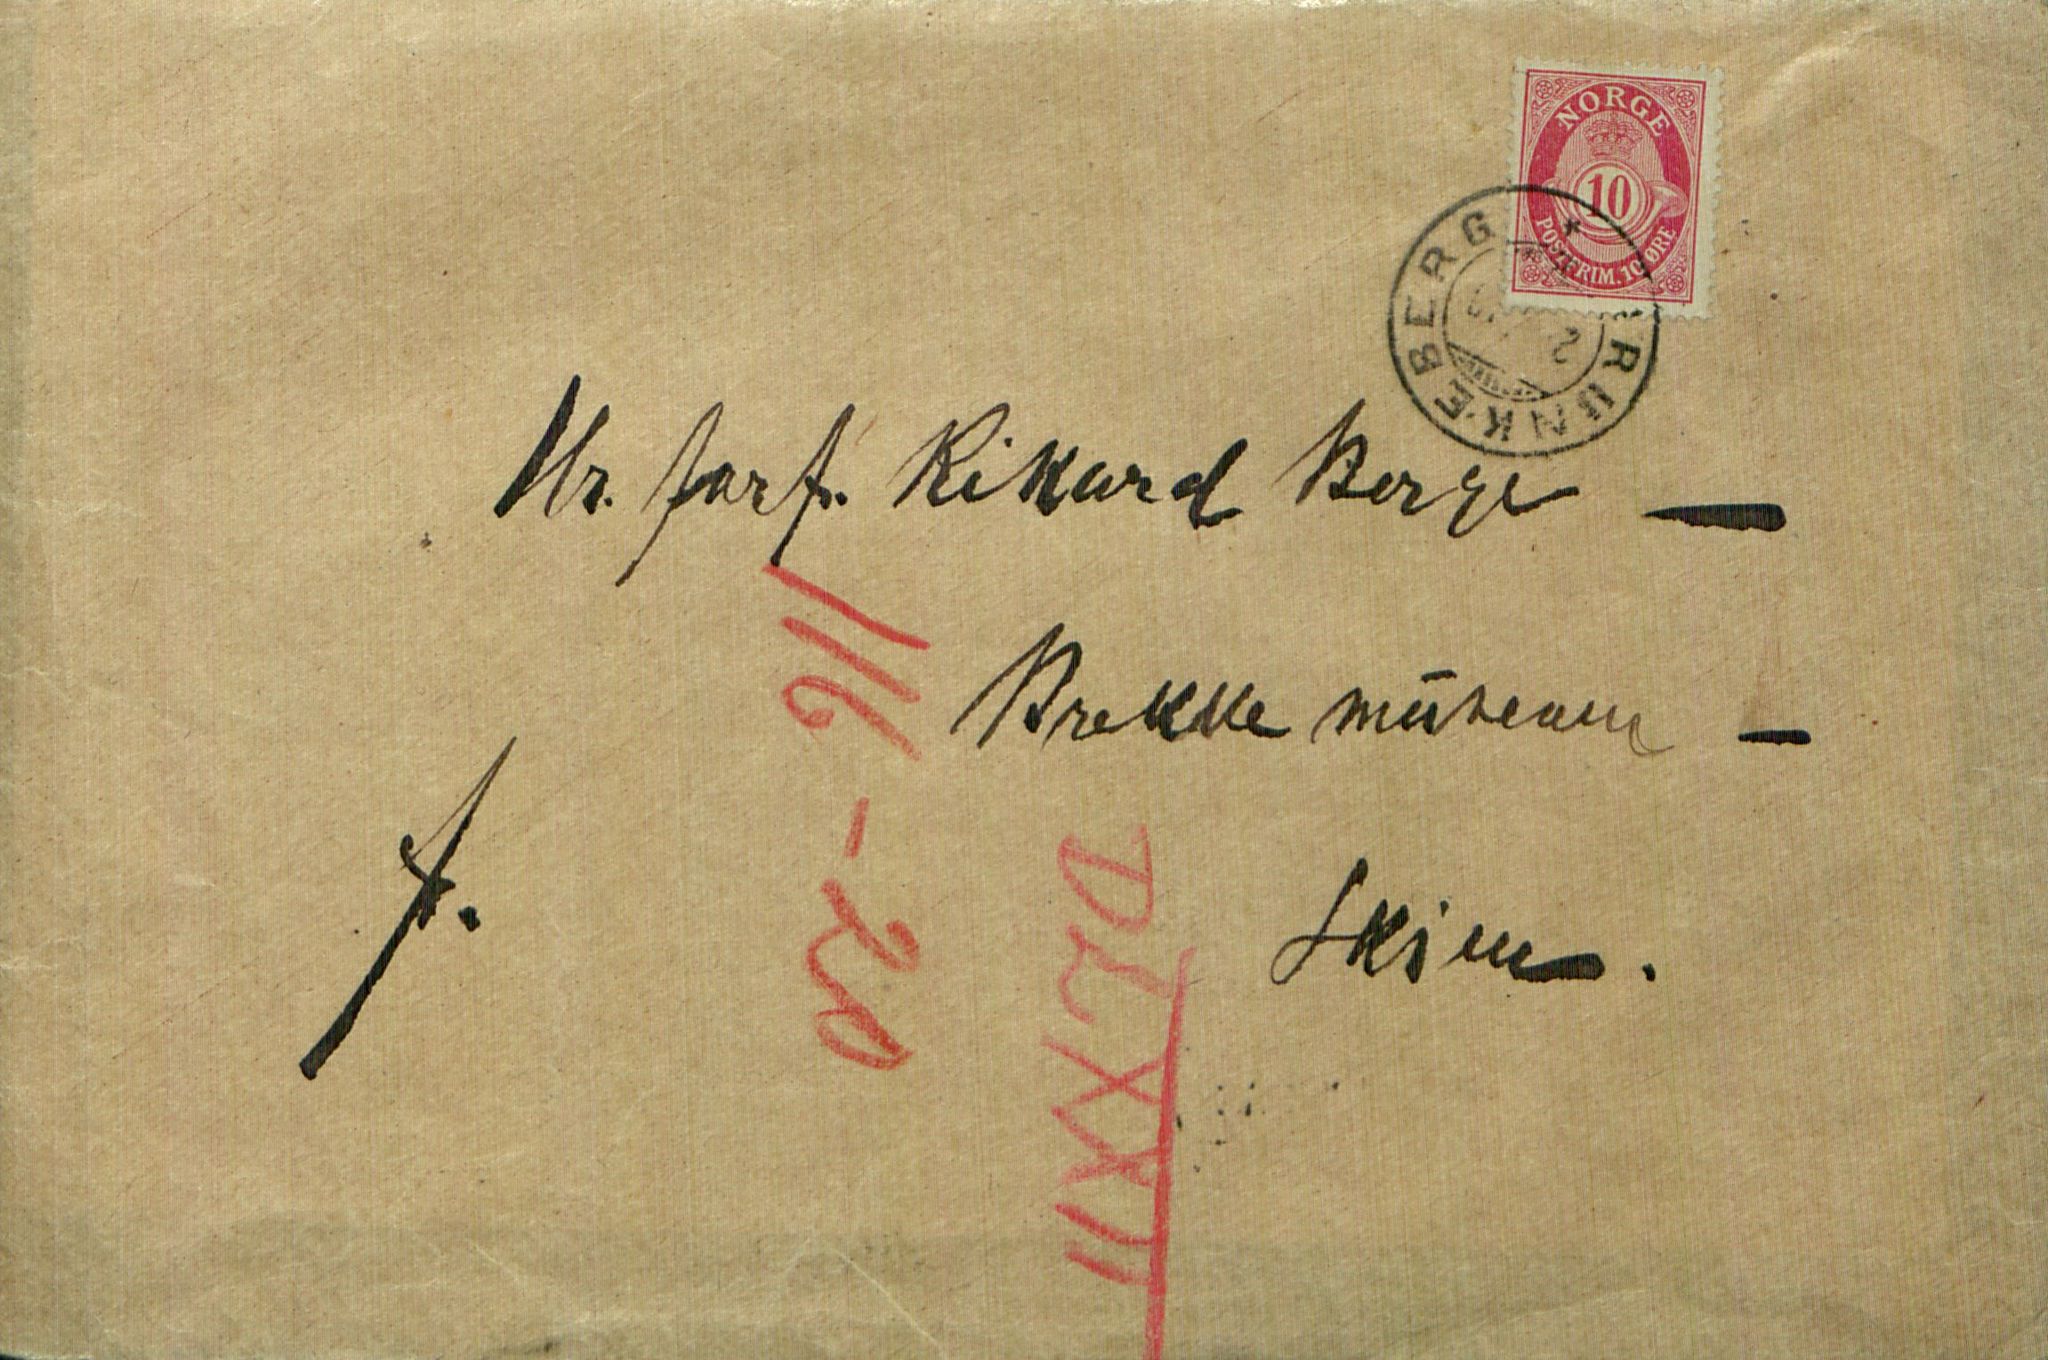 NORGE
10
POSTFRIM. 10 ØRE
BRUNKEBERG
Hr. forf. Rikard Berge —
Brekke müseum —
Skien.
f.
116-20
DLXXII